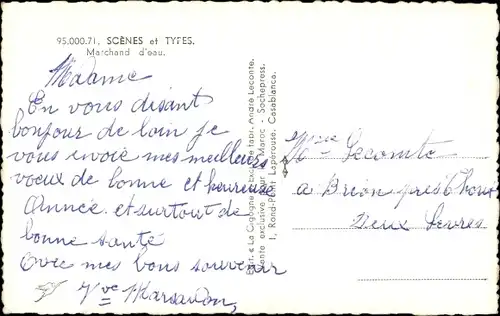 95.000.71, SCÈNES et TYPES.
Marchand d'eau.
Madame
En vous disant
bonjour de loin je
vous envoie mes meilleurs
voeux de bonne et heureuse
Année et surtout de
bonne santé
Avec mes bons souvenir
Vve
Edit. « La Cigogne » Exclusive fabr. André Leconte.
Vente exclusive pour le Maroc - Sochepress.
1, Rond-Point Lapérouse, Casablanca.
Mme Lecomte
a Brion près Thouet
Deux Sevres